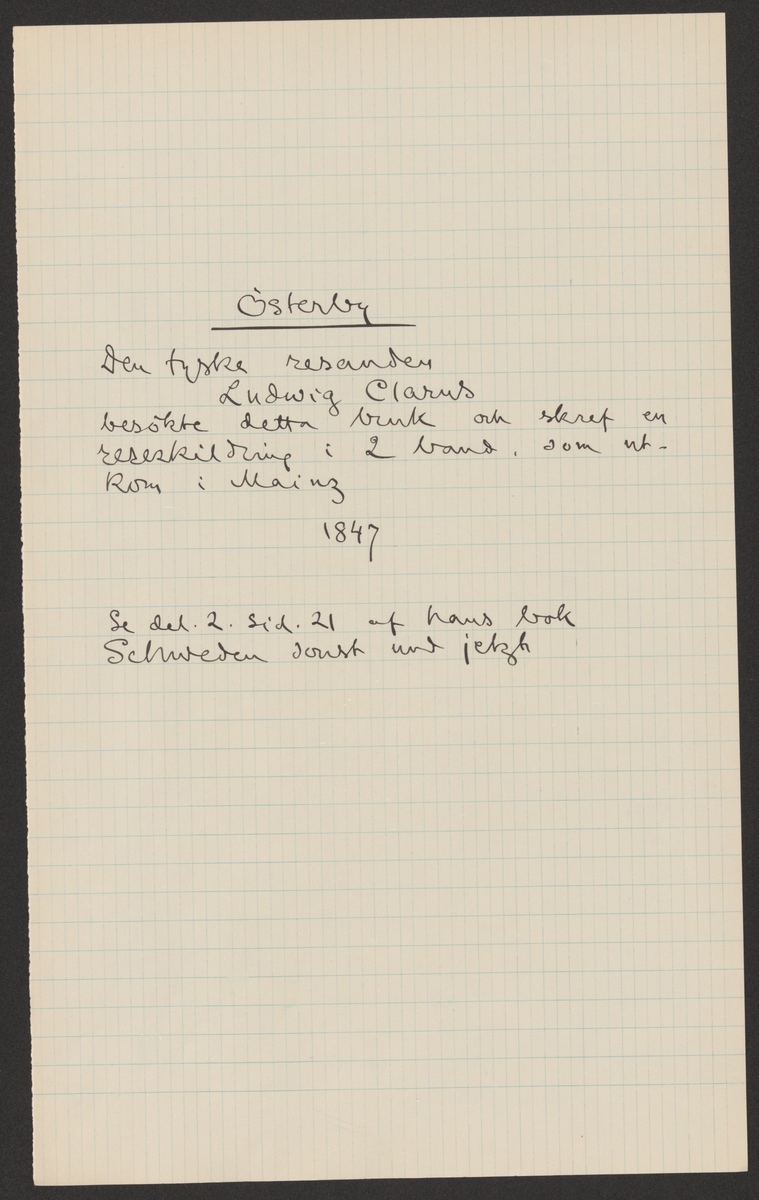 Österby
Den tyske resanden
Ludwig Clarus
besökte detta bruk och skref en
reseskildring i 2 band, som ut-
kom i Mainz
1847
Se del. 2. sid. 21 af hans bok
Schweden sonst und jetzt